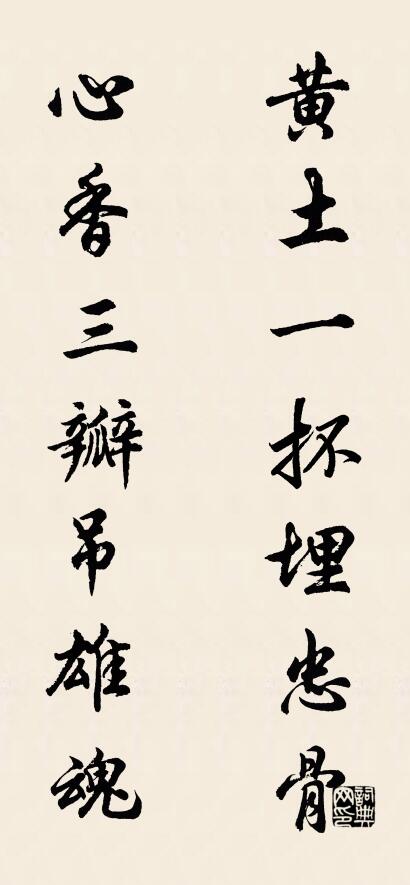 黄土一抔埋忠骨
心香三瓣吊雄魂
詞典
网印